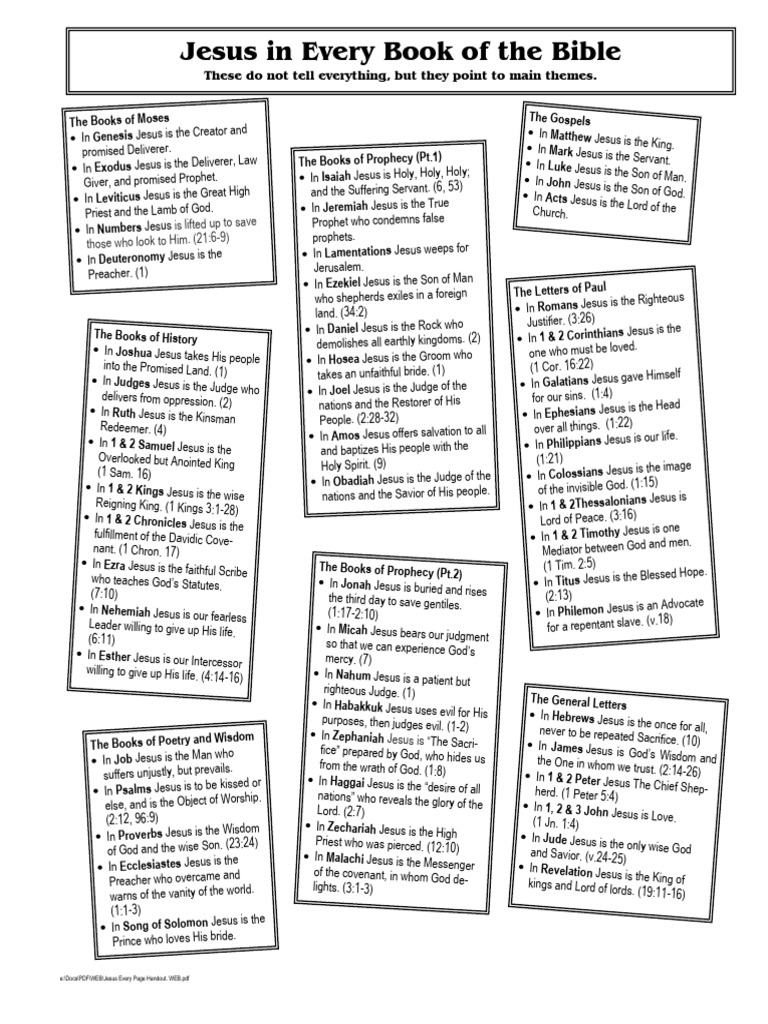 Jesus in Every Book of the Bible
These do not tell everything, but they point to main themes.
The Books of Moses
• In Genesis Jesus is the Creator and
promised Deliverer.
• In Exodus Jesus is the Deliverer, Law
Giver, and promised Prophet.
• In Leviticus Jesus is the Great High
Priest and the Lamb of God.
• In Numbers Jesus is lifted up to save
those who look to Him. (21:6-9)
• In Deuteronomy Jesus is the
Preacher. (1)
The Books of History
• In Joshua Jesus takes His people
into the Promised Land. (1)
• In Judges Jesus is the Judge who
delivers from oppression. (2)
• In Ruth Jesus is the Kinsman
Redeemer. (4)
• In 1 & 2 Samuel Jesus is the
Overlooked but Anointed King
(1 Sam. 16)
• In 1 & 2 Kings Jesus is the wise
Reigning King. (1 Kings 3:1-28)
• In 1 & 2 Chronicles Jesus is the
fulfillment of the Davidic Cove-
nant. (1 Chron. 17)
• In Ezra Jesus is the faithful Scribe
who teaches God's Statutes.
(7:10)
• In Nehemiah Jesus is our fearless
Leader willing to give up His life.
(6:11)
• In Esther Jesus is our Intercessor
willing to give up His life. (4:14-16)
The Books of Poetry and Wisdom
• In Job Jesus is the Man who
suffers unjustly, but prevails.
• In Psalms Jesus is to be kissed or
else, and is the Object of Worship.
(2:12, 96:9)
• In Proverbs Jesus is the Wisdom
of God and the wise Son. (23:24)
• In Ecclesiastes Jesus is the
Preacher who overcame and
warns of the vanity of the world.
(1:1-3)
• In Song of Solomon Jesus is the
Prince who loves His bride.
The Books of Prophecy (Pt.1)
• In Isaiah Jesus is Holy, Holy, Holy;
and the Suffering Servant. (6, 53)
• In Jeremiah Jesus is the True
Prophet who condemns false
prophets.
• In Lamentations Jesus weeps for
Jerusalem.
• In Ezekiel Jesus is the Son of Man
who shepherds exiles in a foreign
land. (34:2)
• In Daniel Jesus is the Rock who
demolishes all earthly kingdoms. (2)
• In Hosea Jesus is the Groom who
takes an unfaithful bride. (1)
• In Joel Jesus is the Judge of the
nations and the Restorer of His
People. (2:28-32)
• In Amos Jesus offers salvation to all
and baptizes His people with the
Holy Spirit. (9)
• In Obadiah Jesus is the Judge of the
nations and the Savior of His people.
The Books of Prophecy (Pt.2)
• In Jonah Jesus is buried and rises
the third day to save gentiles.
(1:17-2:10)
• In Micah Jesus bears our judgment
so that we can experience God's
mercy. (7)
• In Nahum Jesus is a patient but
righteous Judge. (1)
• In Habakkuk Jesus uses evil for His
purposes, then judges evil. (1-2)
• In Zephaniah Jesus is "The Sacri-
fice" prepared by God, who hides us
from the wrath of God. (1:8)
• In Haggai Jesus is the "desire of all
nations" who reveals the glory of the
Lord. (2:7)
• In Zechariah Jesus is the High
Priest who was pierced. (12:10)
• In Malachi Jesus is the Messenger
of the covenant, in whom God de-
lights. (3:1-3)
The Gospels
• In Matthew Jesus is the King.
• In Mark Jesus is the Servant.
• In Luke Jesus is the Son of Man.
• In John Jesus is the Son of God.
• In Acts Jesus is the Lord of the
Church.
The Letters of Paul
• In Romans Jesus is the Righteous
Justifier. (3:26)
• In 1 & 2 Corinthians Jesus is the
one who must be loved.
(1 Cor. 16:22)
• In Galatians Jesus gave Himself
for our sins. (1:4)
• In Ephesians Jesus is the Head
over all things. (1:22)
• In Philippians Jesus is our life.
(1:21)
• In Colossians Jesus is the image
of the invisible God. (1:15)
• In 1 & 2Thessalonians Jesus is
Lord of Peace. (3:16)
• In 1 & 2 Timothy Jesus is one
Mediator between God and men.
(1 Tim. 2:5)
• In Titus Jesus is the Blessed Hope.
(2:13)
• In Philemon Jesus is an Advocate
for a repentant slave. (v.18)
The General Letters
• In Hebrews Jesus is the once for all,
never to be repeated Sacrifice. (10)
• In James Jesus is God's Wisdom and
the One in whom we trust. (2:14-26)
• In 1 & 2 Peter Jesus The Chief Shep-
herd. (1 Peter 5:4)
• In 1, 2 & 3 John Jesus is Love.
(1 Jn. 1:4)
• In Jude Jesus is the only wise God
and Savior. (v.24-25)
• In Revelation Jesus is the King of
kings and Lord of lords. (19:11-16)
e:\Docs\PDF\WEB\Jesus Every Page Handout. WEB.pdf